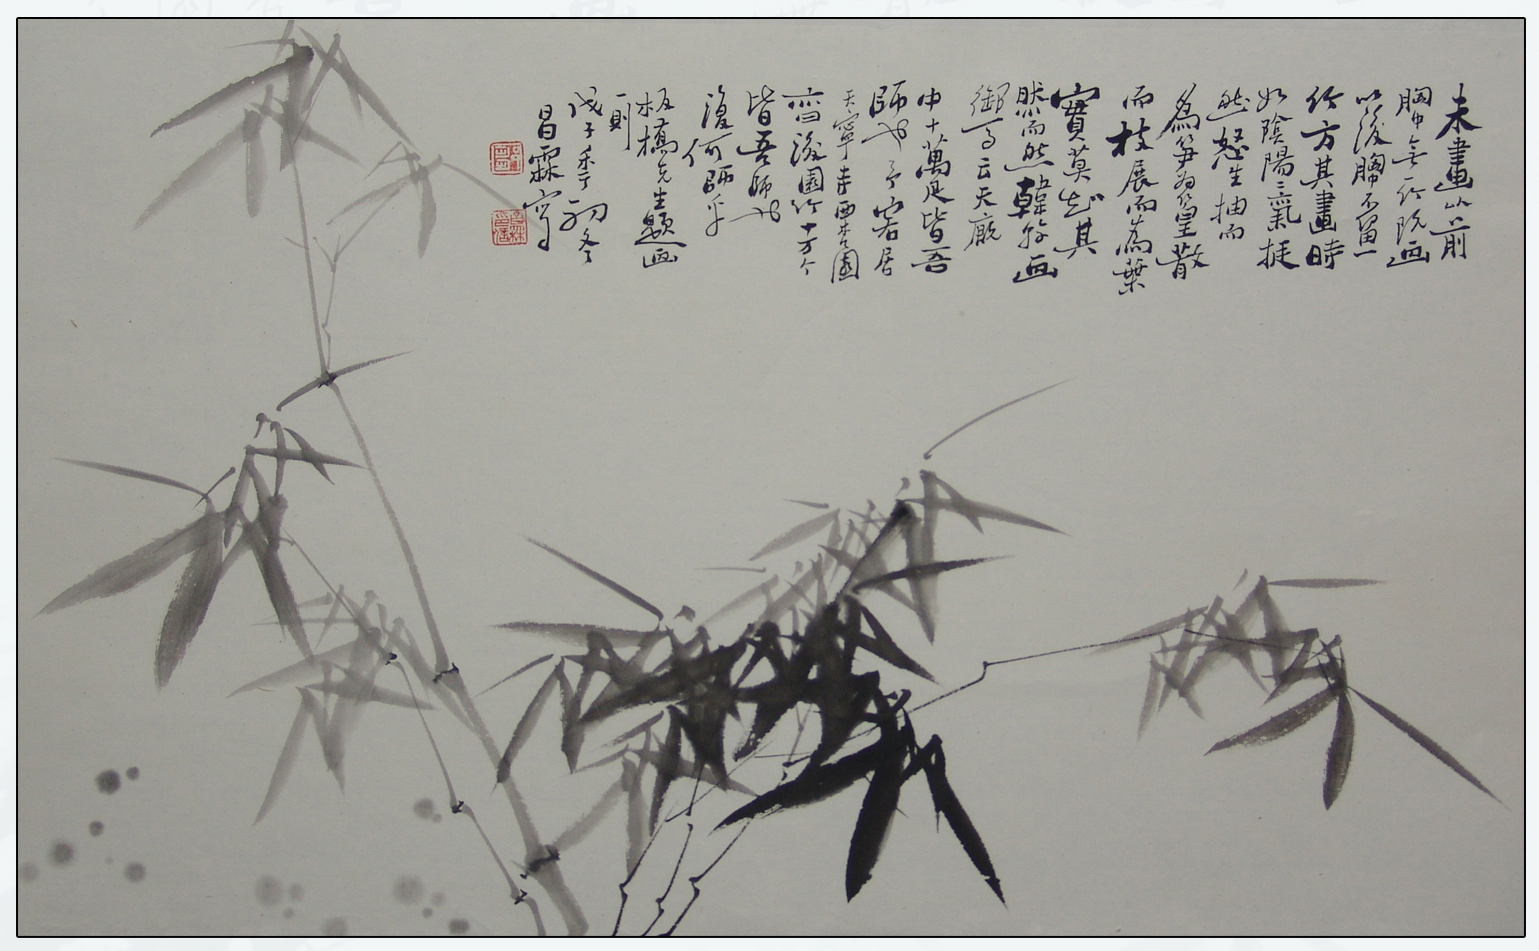 未畫以前
胸無竹既画
以後胸不留一
竹方其畫時
如陰陽二氣挺
然怒生抽而
為笋为篁散
而枝展而為葉
實莫知其
然而然韓幹画
御馬云天廄
中十萬匹皆吾
師也予客居
天寧寺西杏園
亦曰後園竹十万个
皆吾師也
復何師乎
板橋先生題画
一則
戊子季初冬
昌霖寫